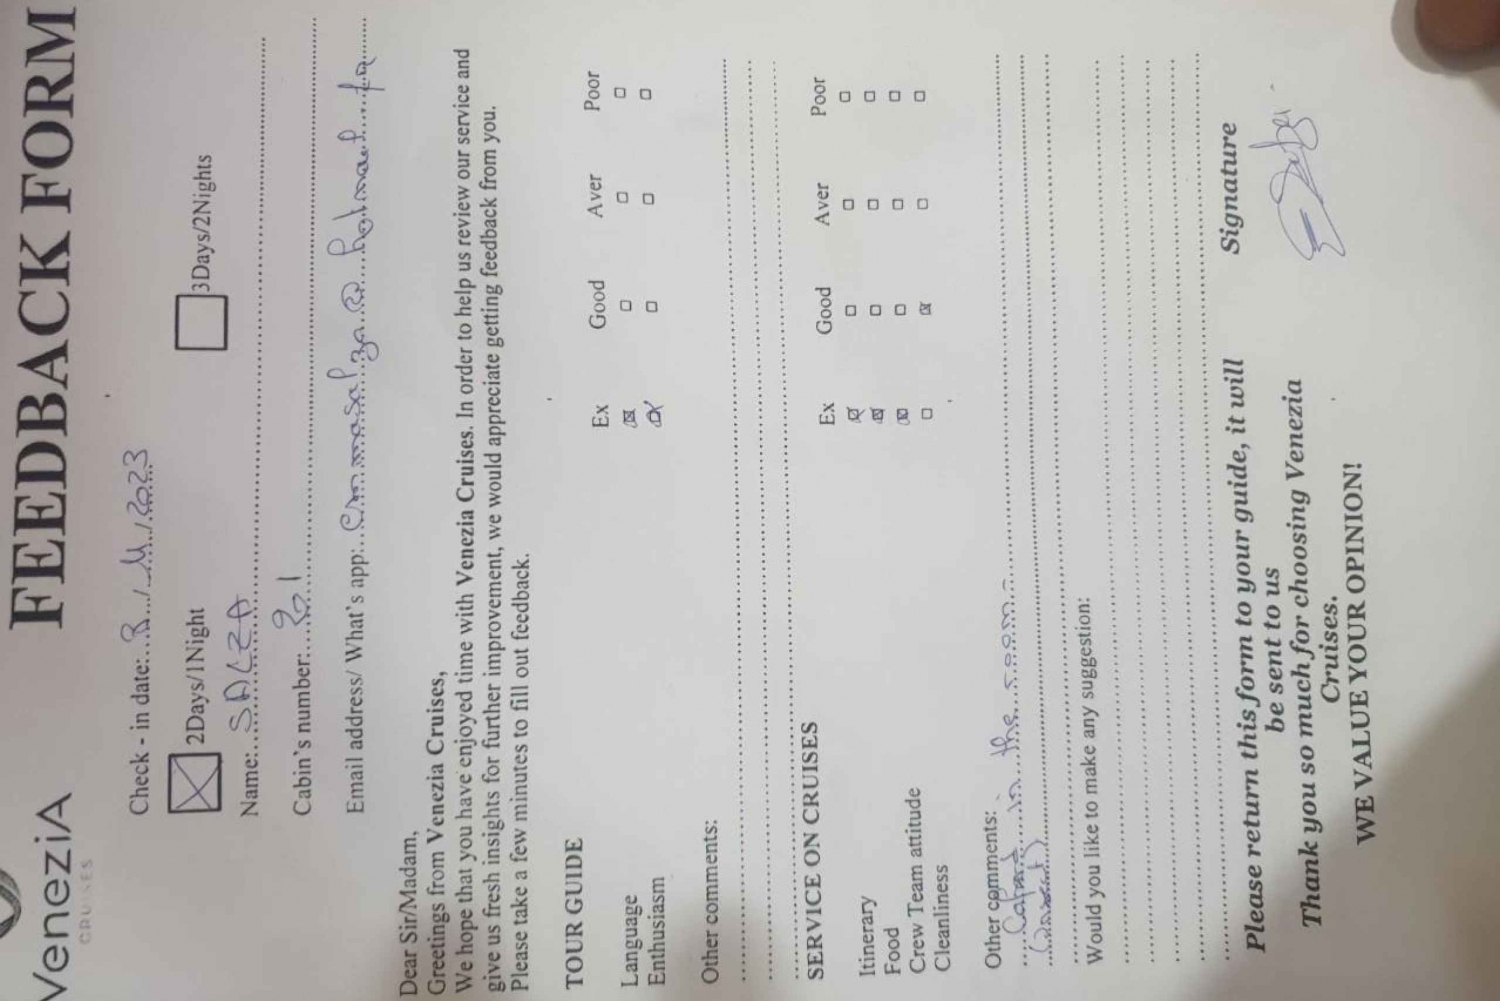 VeneziA
CRUISES
FEEDBACK FORM
Check - in date:..8../..11../..2023
2Days/1Night 3Days/2Nights
Name:..SALZA
Cabin's number:...201
Email address/ What's app:..emmasalza@hotmail.fr
Dear Sir/Madam,
Greetings from Venezia Cruises,
We hope that you have enjoyed time with Venezia Cruises. In order to help us review our service and
give us fresh insights for further improvement, we would appreciate getting feedback from you.
Please take a few minutes to fill out feedback.
TOUR GUIDE Ex Good Aver Poor
Language
Enthusiasm
Other comments:
SERVICE ON CRUISES Ex Good Aver Poor
Itinerary
Food
Crew Team attitude
Cleanliness
Other comments:
in the room
Would you like to make any suggestion:
Please return this form to your guide, it will
be sent to us
Thank you so much for choosing Venezia
Cruises.
WE VALUE YOUR OPINION!
Signature